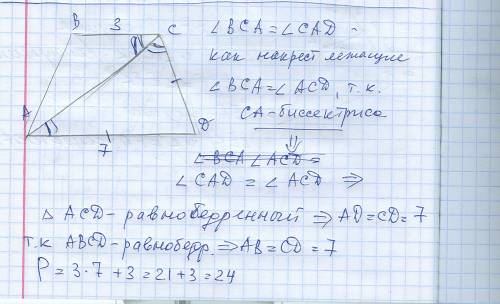 B 3 C
A D
7
∠BCA = ∠CAD -
как накрест лежащие
∠BCA = ∠ACD, т.к.
CA - биссектриса
⇓
∠BCA ∠ACD =
∠CAD = ∠ACD ⇒
△ ACD - равнобедренный ⇒ AD = CD = 7
т.к ABCD - равнобедр. ⇒ AB = CD = 7
P = 3·7 + 3 = 21 + 3 = 24